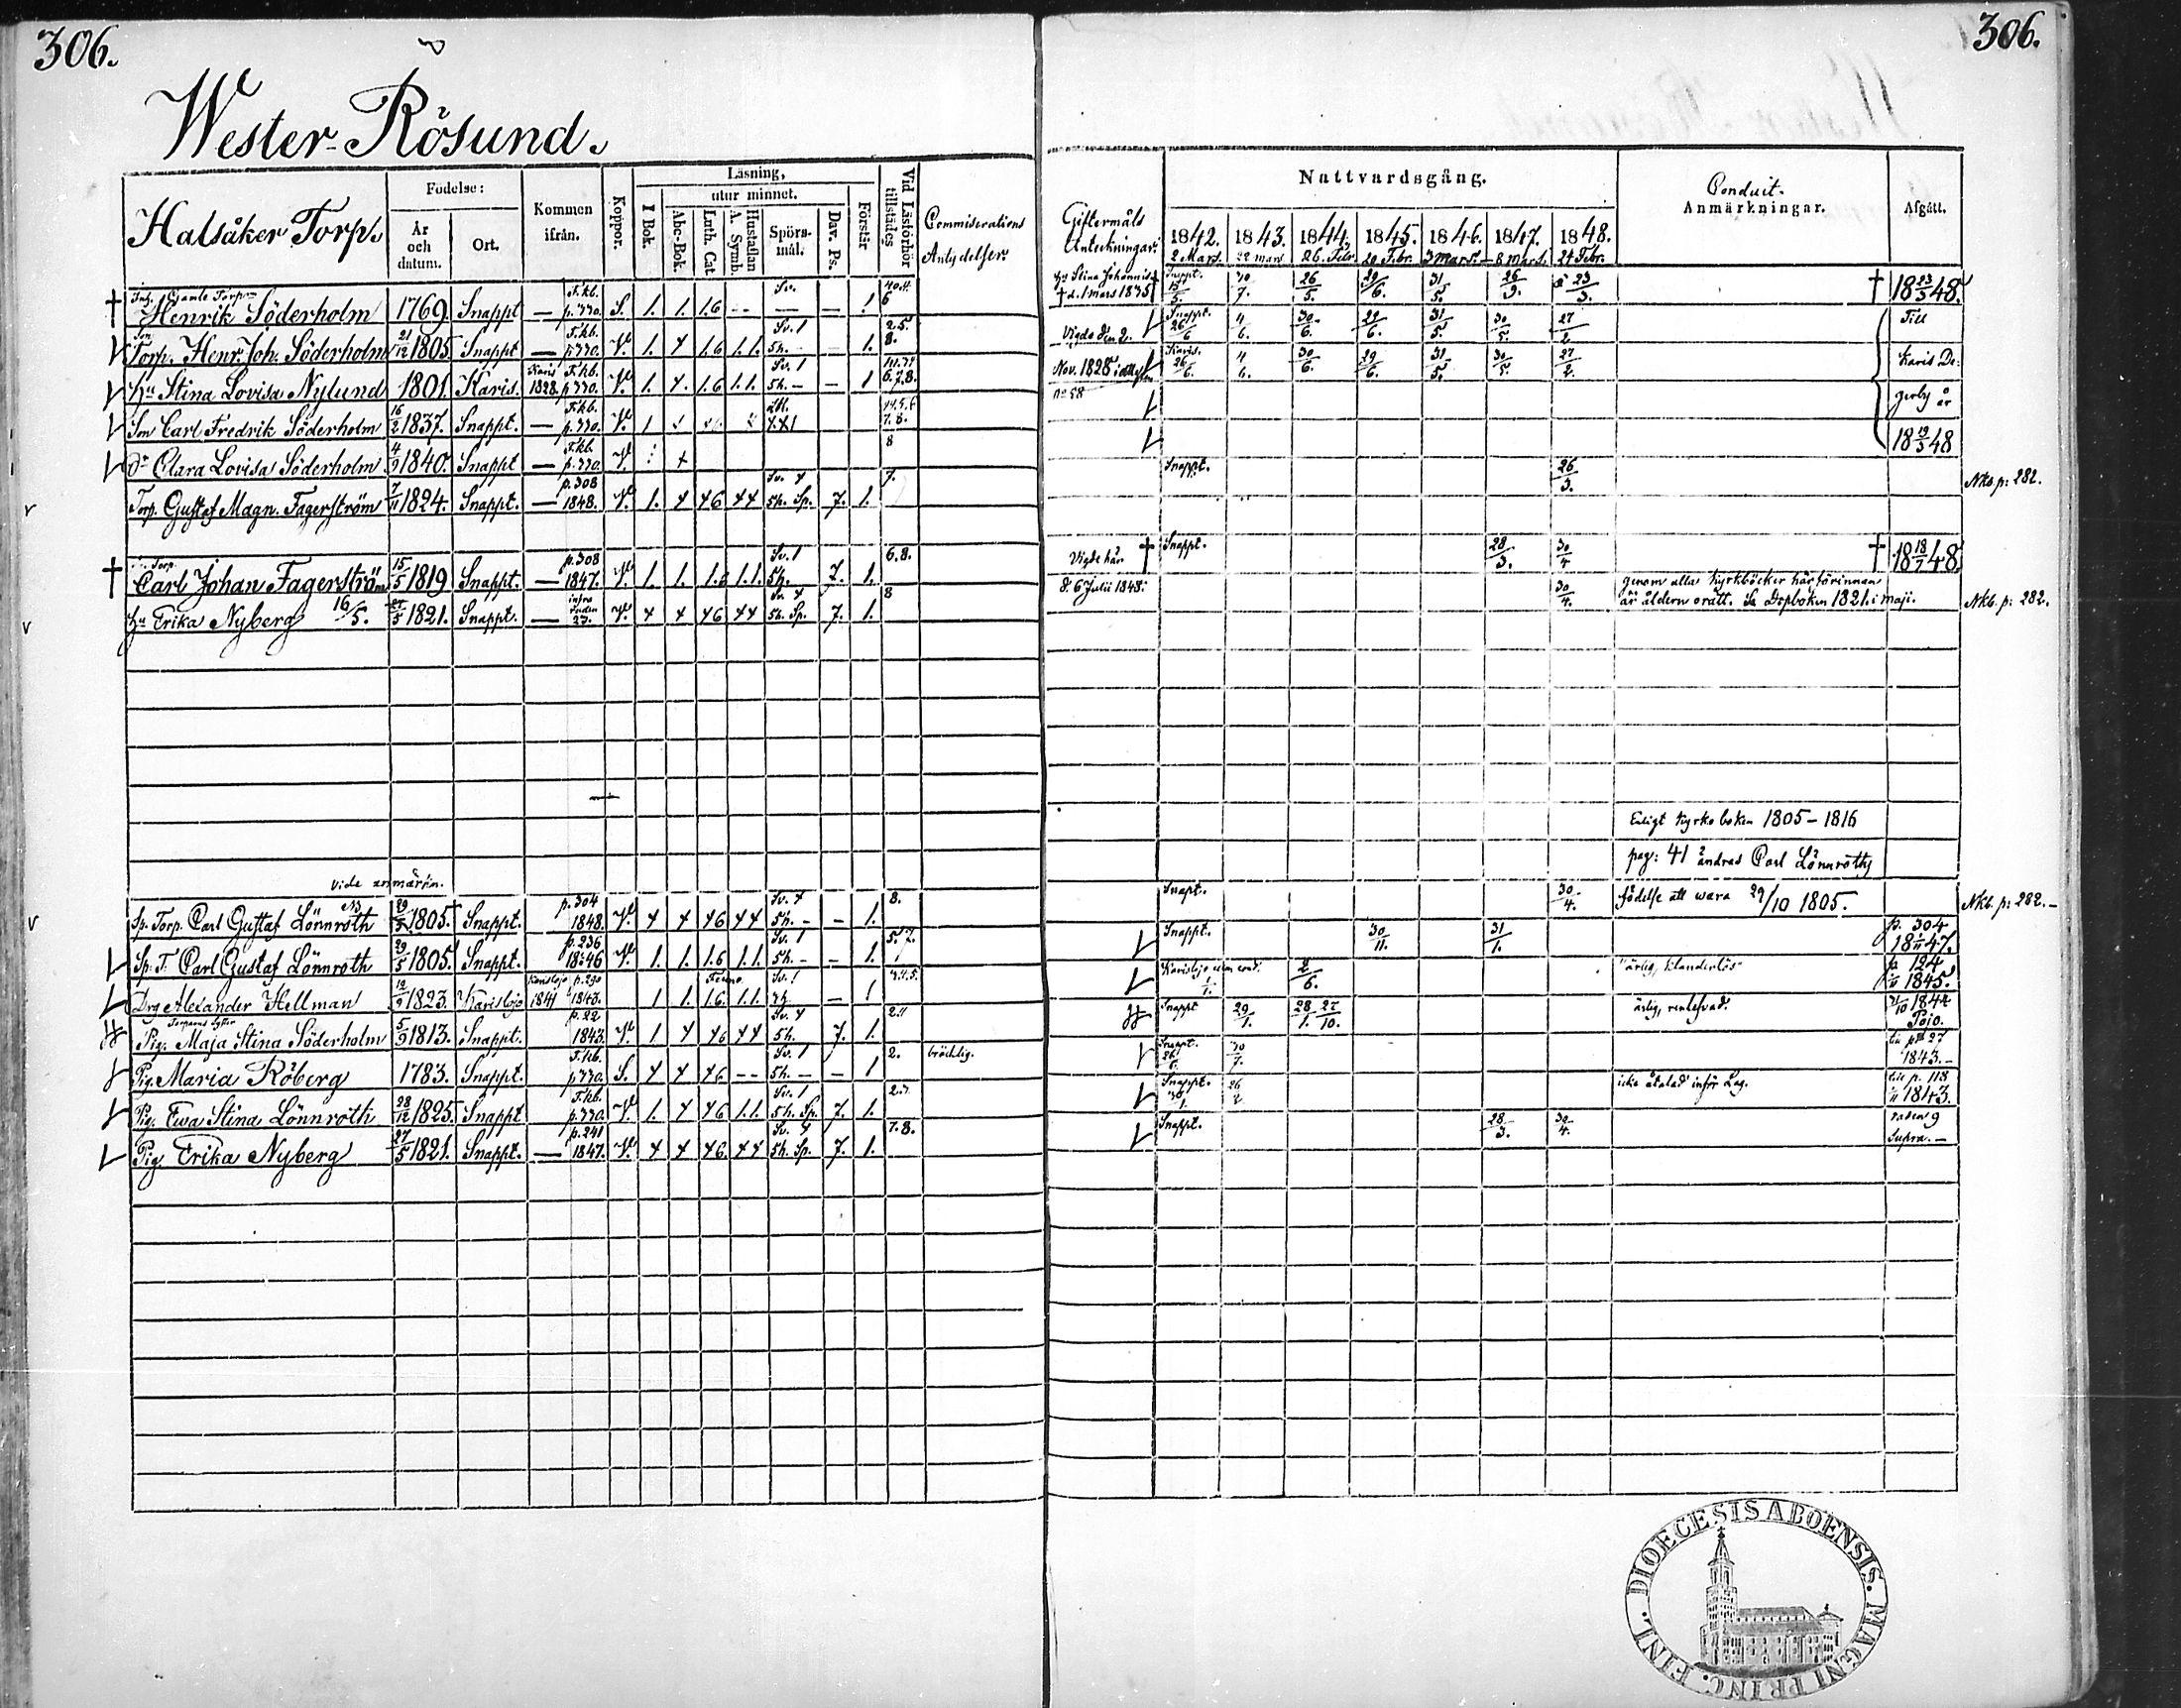 306.
306.
Wester-Rösund.
Halsåker Torp.
Födelse:
År och datum.
Ort.
Kommen ifrån.
Koppor.
Läsning,
utur minnet.
I Bok.
Abc-Bok.
Luth. Cat.
Hustaflan A. Symb.
Spörsmål.
Dav. Ps.
Förstår
Vid Läsförhör tillstädes
Commiserations Antydelser.
Giftermåls Anteckningar.
Nattvardsgång.
1842. 1843. 1844. 1845. 1846. 1847. 1848.
2 Mars. 22 mars 26. Febr. 20 Febr. 3 mars. 8 mars. 24 Febr.
Conduit.
Anmärkningar.
Afgått.
† Gamle Torp. Henrik Söderholm 1769 Snappt — F.kb. p.330. S. 1. 1. 1.6 -- — — 1 Stina † d. 1 mars 1835 Snappt. 26/5. 29/6. 31/5. † 18 23/3 48.
Son Torp. Henr. Joh. Söderholm 21/12 1805 Snappt — F.kb. p.330. V. 1. 4 1.6 1.1. Sv. 1 5h. - — 1. 8. Vigde den 2. Snappt. 26/6 4/6. 30/6. 29/6. 31/5. 30/5. 27/2 Till
hu Stina Lovisa Nylund 1801. Karis. Karis 1828. F.kb. p.330. V. 1. 4. 1.6 1.1. Sv. 1 5h. - — 1 6.7.8. Nov. 1828 Karis. 26/6. 4/6. 30/6. 29/6. 31/5. 30/5. 27/2. Karis De-
Son Carl Fredrik Söderholm 16/2 1837. Snappt. — F.kb. p.330. V. 1 7.8. no 58 gerby år
dr Clara Lovisa Söderholm 4/9 1840. Snappt — F.kb. p.330. V. 8 18 19/3 48
Torp. Gustaf Magn. Fagerström 7/11 1824. Snappt. — p.308 1848. V. 1. 4 46 44 Sv. 4 5h. Sp. 7. 1. 7. Snappt. 26/3. Nkb p: 282.
† Torp. Carl Johan Fagerström 15/5 1819 Snappt. — p.308 1847. V. 1 1. 1.6 1.1. Sv. 1 5h. 7. 1. 6.8. Vigde här † Snappt. 28/3. 30/4 † 18 18/7 48.
hu Erika Nyberg 16/5. 27/5 1821. Snappt. — infra 27. V. 4 4 46 44 Sv. 4 5h. Sp. 7. 1. 8 d. 6 Julii 1848. 30/4. genom alla kyrkböcker härförinnan
är åldern orätt. Se Dopboken 1821. i maji. Nkb. p: 282.
Enligt kyrkoboken 1805-1816
pag: 41 ändras Carl Lönnroths
vide anmärkn.
Sp. Torp. Carl Gustaf Lönnroth 29/5 1805. Snappt. p.304 1848. V. 4 4 46 44 Sv. 4 5h. - - 1. 8. Snapt. 30/4. födelse att wara 29/10 1805. Nkb. p: 282.-
Sp: T. Carl Gustaf Lönnroth 29/5 1805. Snappt. p.236 1846 V. 1. 1. 1.6 1.1. Sv. 1 5h. - - 1. 5.7. Snappt. 30/11. 31/1. p. 304 1847.
Drg Alexander Hellman 12/9 1823. Karislojo Karislojo 1841 p.290 1843. 1 1. 1.6. 1.1. Sv. 1 — 1 Karislojo 2/6. "ärlig, klanderlös" p 124 1845.
Torparns syster Pig. Maja Stina Söderholm 5/9 1813. Snappt. p.22 1843. V. 1 4 46 44 Sv. 4 5h. 7. 1. Snappt 29/1. 28/1. 27/10. ärlig, 21/10 1844 Pojo.
Pig. Maria Röberg 1783. Snappt. F.kb. p.330. S. 4 4 46 -- Sv. 1 5h. - - 1 2. bräcklig. Snappt. 26/6. 30/7. p 27 1843.-
Pig. Ewa Stina Lönnroth 28/12 1825. Snappt F.kb. p.330. V. 1. 4 46 1.1. Sv. 1 5h. Sp. 7. 1. Snappt. 30/1. 26/2 icke åtalad inför Lag. till p. 118 1843.
Pig. Erika Nyberg 27/5 1821. Snappt. — p.241 1847. V. 4 4 46. 44 Sv. 4 5h. Sp. 7. 1. 7.8. Snappt. 28/3. 30/4. raden 9 Supra.-
DIOECESIS ABOENSIS. MAGNI PRINC. FINL.